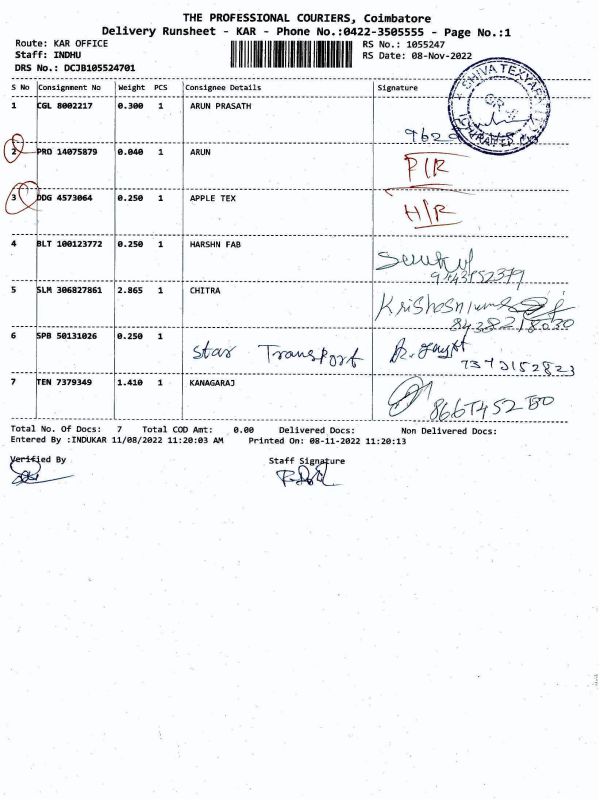 THE PROFESSIONAL COURIERS, Coimbatore
Delivery Runsheet - KAR - Phone No.:0422-3505555 - Page No.:1
Route: KAR OFFICE RS No.: 1055247
Staff: INDHU RS Date: 08-Nov-2022
DRS No.: DCJB105524701
S No Consignment No Weight PCS Consignee Details Signature
1 CGL 8002217 0.300 1 ARUN PRASATH
SHIVA TEXYARN
962
2 PRO 14075879 0.040 1 ARUN P/R
3 DDG 4573064 0.250 1 APPLE TEX H/R
4 BLT 100123772 0.250 1 HARSHN FAB
5 SLM 306827861 2.865 1 CHITRA
6 SPB 50131026 0.250 1
Star Transport
7 TEN 7379349 1.410 1 KANAGARAJ
Total No. Of Docs: 7 Total COD Amt: 0.00 Delivered Docs: Non Delivered Docs:
Entered By :INDUKAR 11/08/2022 11:20:03 AM Printed On: 08-11-2022 11:20:13
Verified By Staff Signature